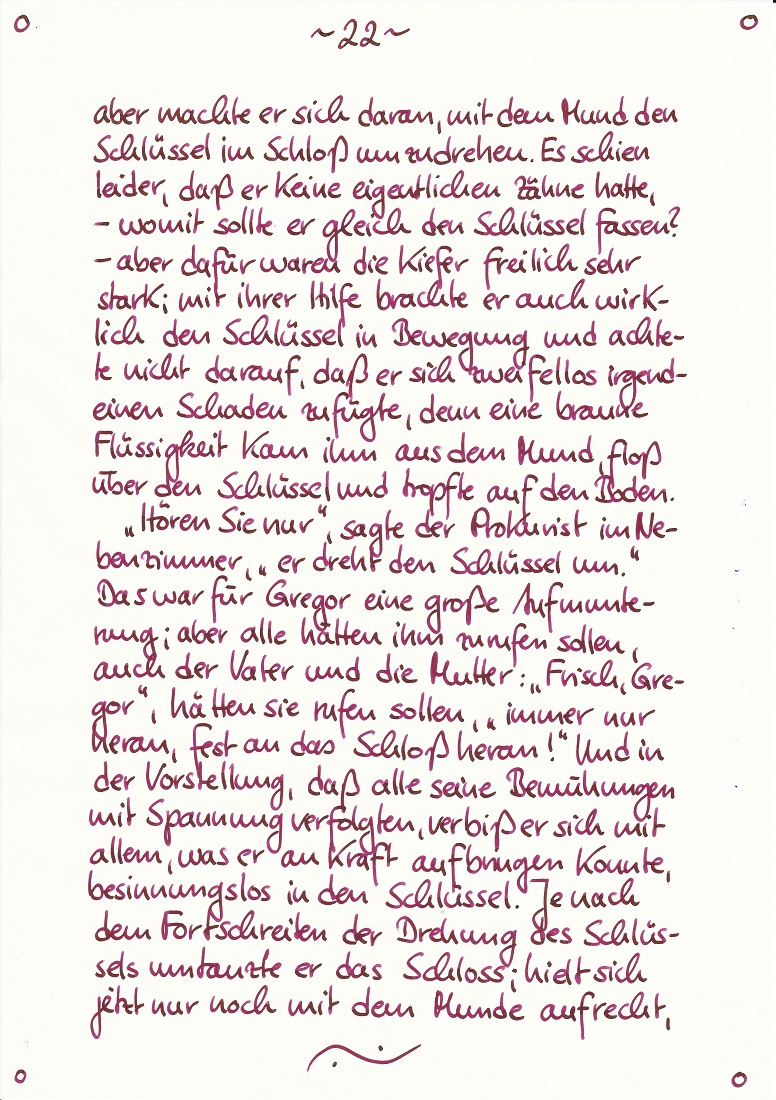 ~22~
aber machte er sich daran, mit dem Mund den
Schlüssel im Schloß umzudrehen. Es schien
leider, daß er keine eigentlichen Zähne hatte,
– womit sollte er gleich den Schlüssel fassen?
– aber dafür waren die Kiefer freilich sehr
stark; mit ihrer Hilfe brachte er auch wirk-
lich den Schlüssel in Bewegung und achte-
te nicht darauf, daß er sich zweifellos irgend-
einen Schaden zufügte, denn eine braune
Flüssigkeit kam ihm aus dem Mund, floß
über den Schlüssel und tropfte auf den Boden.
„Hören Sie nur“, sagte der Prokurist im Ne-
benzimmer, „er dreht den Schlüssel um.“
Das war für Gregor eine große Aufmunte-
rung; aber alle hätten ihm zurufen sollen,
auch der Vater und die Mutter: „Frisch, Gre-
gor“, hätten sie rufen sollen, „immer nur
heran, fest an das Schloß heran!“ Und in
der Vorstellung, daß alle seine Bemühungen
mit Spannung verfolgten, verbiß er sich mit
allem, was er an Kraft aufbringen konnte,
besinnungslos in den Schlüssel. Je nach
dem Fortschreiten der Drehung des Schlüs-
sels umtanzte er das Schloss; hielt sich
jetzt nur noch mit dem Munde aufrecht,